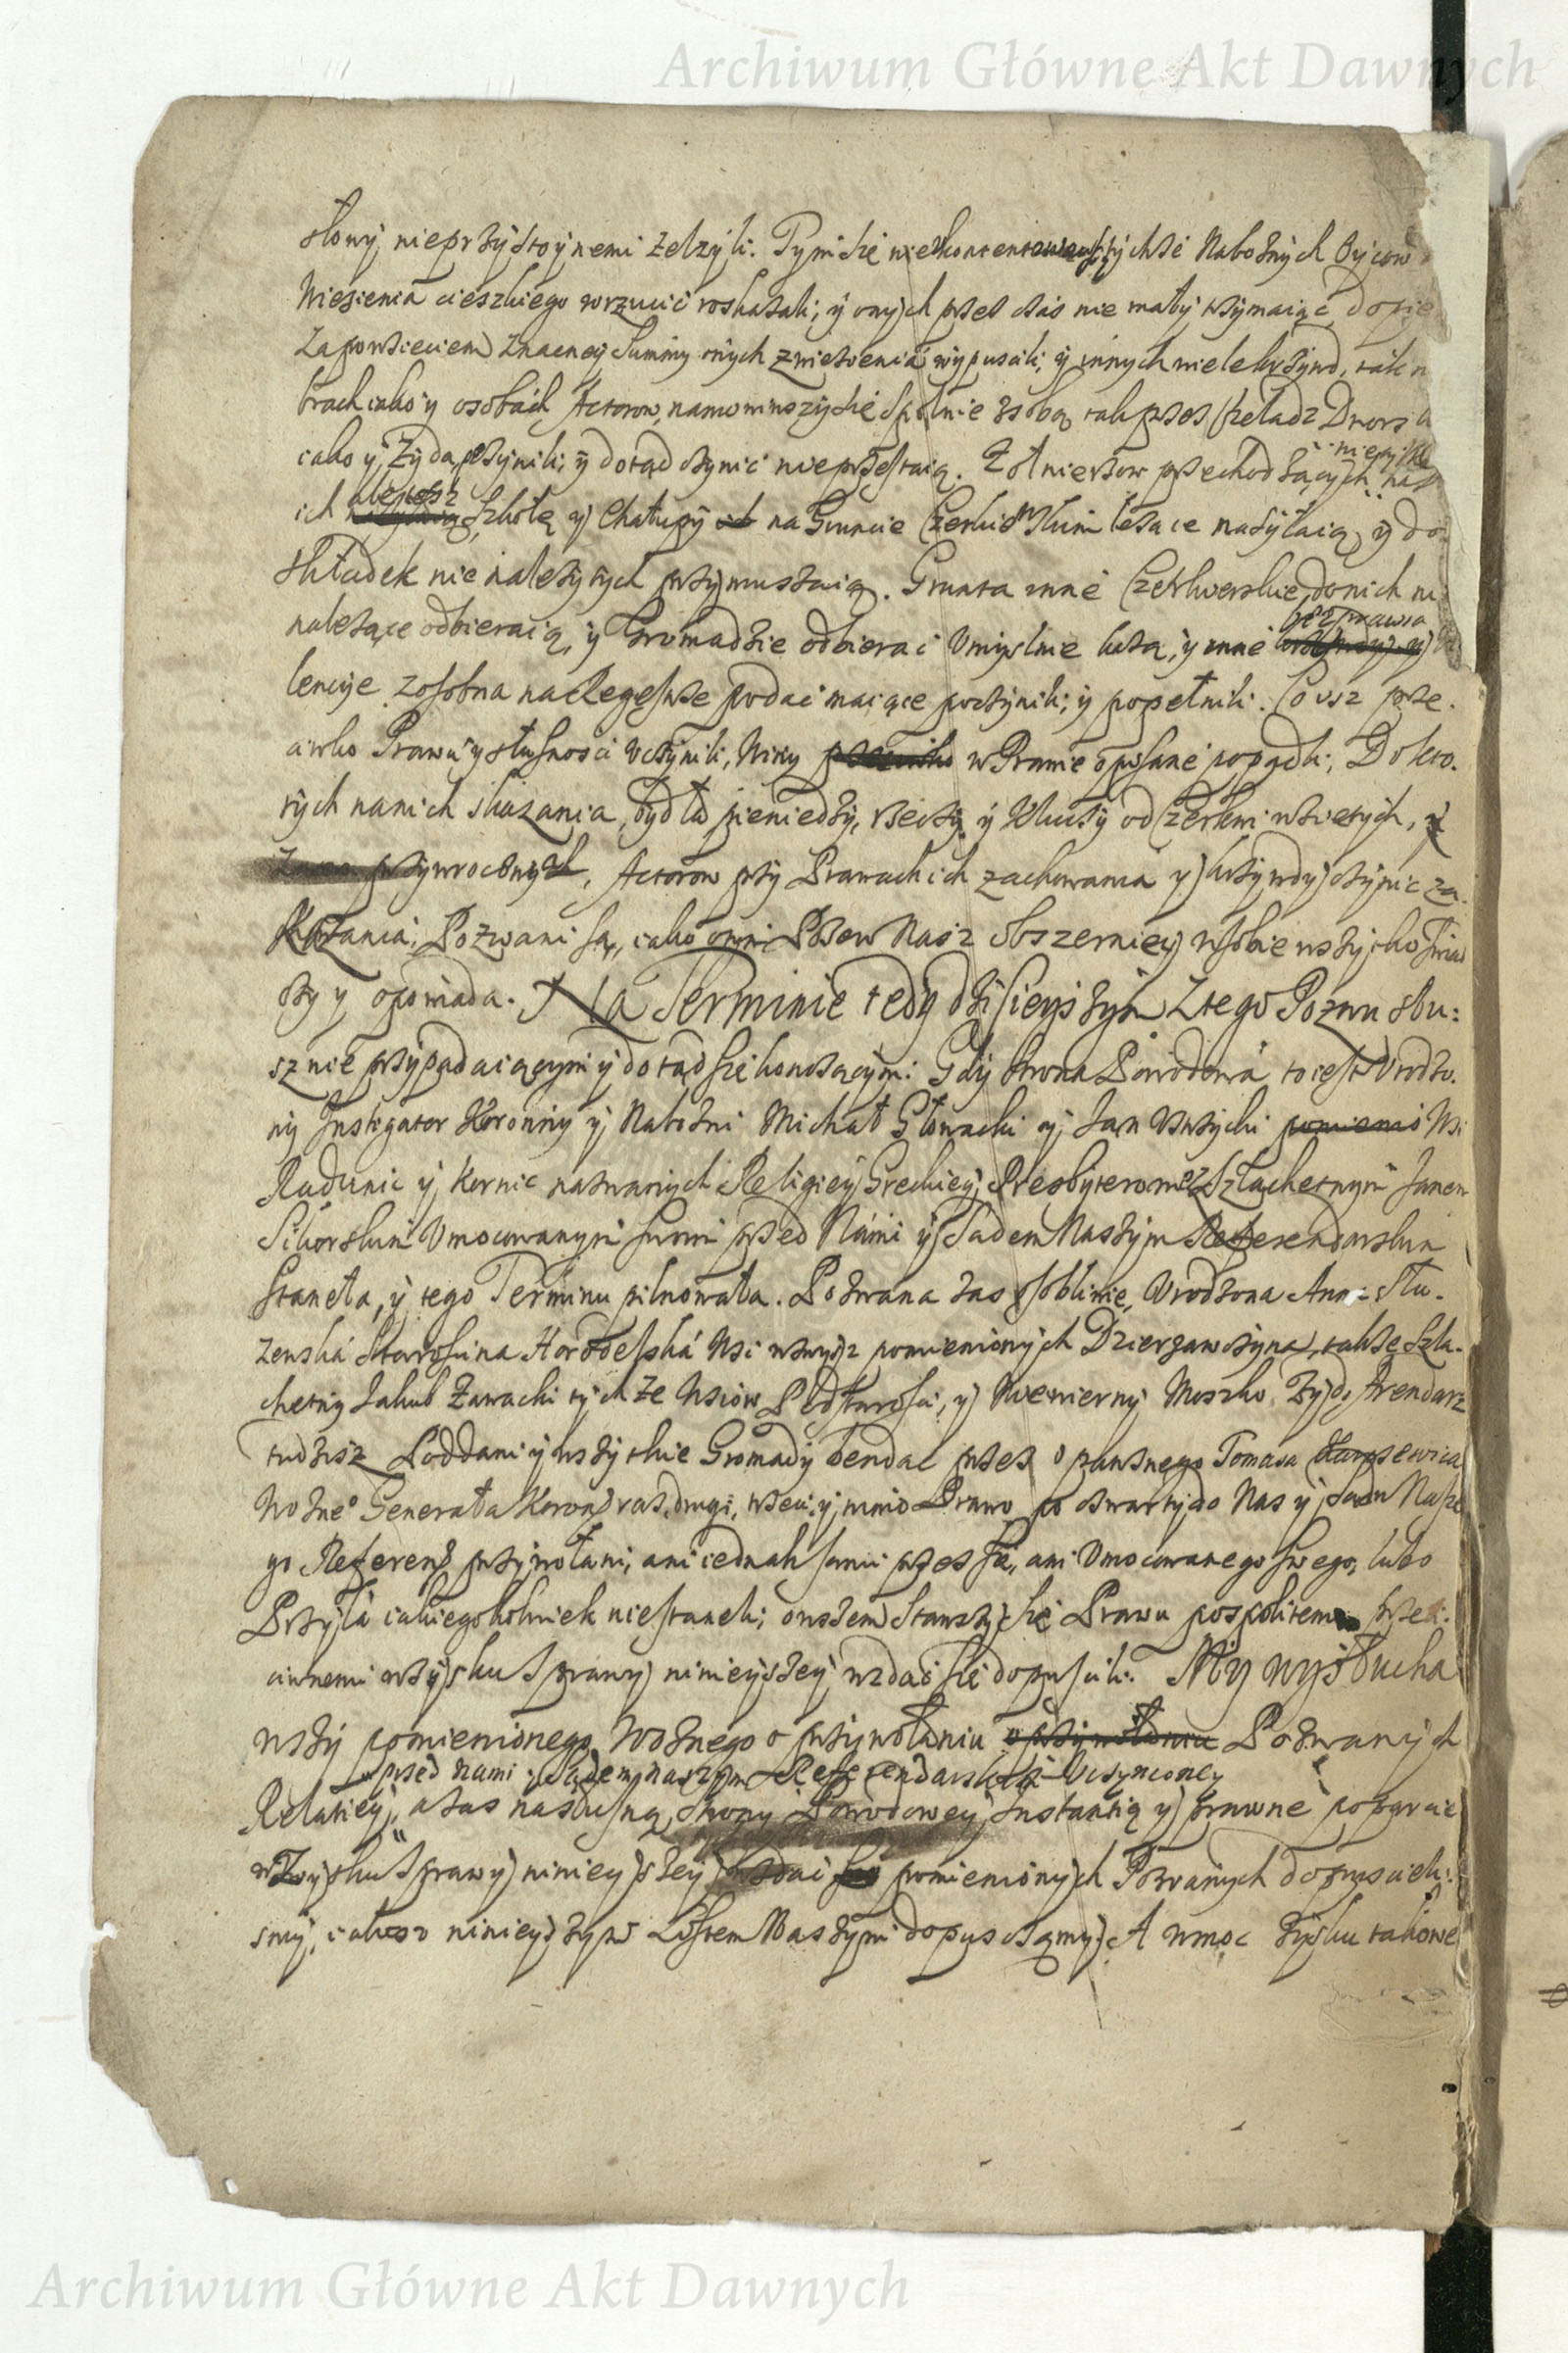 Archiwum Główne Akt Dawnych
słowy nieprzystoynemi zelzyli. Tym się nie kontentowawszy tychże Nabożnych Oycow
Więzienia cieszkiego wrzucić roskazali; y onych przez czas nie mały trzymaiąc, dopie
Zapowzięciem Znaczney Summy onych z więzienia wypuscili, y innych wiele krzywd, tak w
brach iako y osobach Actorow, namowiwszy się spolnie z sobą tak przez Czeladz Dworską
iako y Zyda poczynili; y dotąd czynić nie przestaią. Zołnierzow przechodzących
ich Szkołę y Chałupy na Gruncie Czerkiewskim leżące nasyłaią, y do
składek nie należytych przymuszaią. Grunta inne Czerkiewskie do nich
należące odbieraią, y Gromadzie odbierac Umyslnie każą, y inne bezprawia
lencyie z osobna na Regestrze podać maiące poczynili; y popełnili. Co isz prze.
ciwko Prawu y słusznosci Uczynili, Winy w Prawie opisane popadli; Do kto.
rych na nich skazania, bydła pieniedzy, rzeczy y od Czerkwi wzietych,
przywrocenia, Actorow przy Prawach ich zachowania y krzywdy czynic za.
kazania, Pozwani są, iako Pozew Nasz obszerniey w sobie wszytko swiad
czy y opowiada. Na Terminie tedy dzisieyszym Z tego Pozwu słu:
sznie przypadaiącym y dotąd się konczącym: Gdy strona Powodowa to iest Urodzo.
ny Instygator Koronny y Nabożni Michał Głowacki y Jan Uszycki Wsi
Radunic y Kornic nazwanych Religiey Greckiey Presbyterowie z Szlachetnym Janem
Sikorskim Umocowanym swym przed Nami y Sądem Naszym Referendarskim
staneła, y tego Terminu pilnowała. Pozwana zas osobliwie, Urodzona Anna Słu.
żenska Starosina Horodelska Wsi wzwysz pomienionych Dzierzawczyna, także Szla.
chetny Jakub Zawacki tychże Wsiow Podstarosci, y Niewierny Moszko Zyd Arendarz
tudziesz Poddani y wszytkie Gromady bendąc przez opatrznego Tomasza
Woźne° Generała Koron: raz, drugi, trzeci, y mimo Prawo po czwarty do Nas y Sądu Nasze
go Referend: przywołani; ani iednak sami przez się, ani Umocowanego swego, lubo
Przyiaciela iakiegokolwiek nie staneli; owszem stawszy się Prawu pospolitemu prze:
ciwnemi w zysku Sprawy ninieyszey wzdac się dopuscili. My wysłucha
wszy pomienionego Woźnego o przywołaniu o przywołaniu Pozwanych
przed Nami y Sądem naszym Referendarskim Uczynioney
Relatiey, a zas na słuszną strony Powodowey Instantią y prawne poparcie
w Zysku Sprawy ninieyszey wzdac pomienionych Pozwanych dopuscieli:
smy, iakosz ninieyszym Listem Naszym dopuszczamy. A wmoc zysku takowe
Archiwum Główne Akt Dawnych